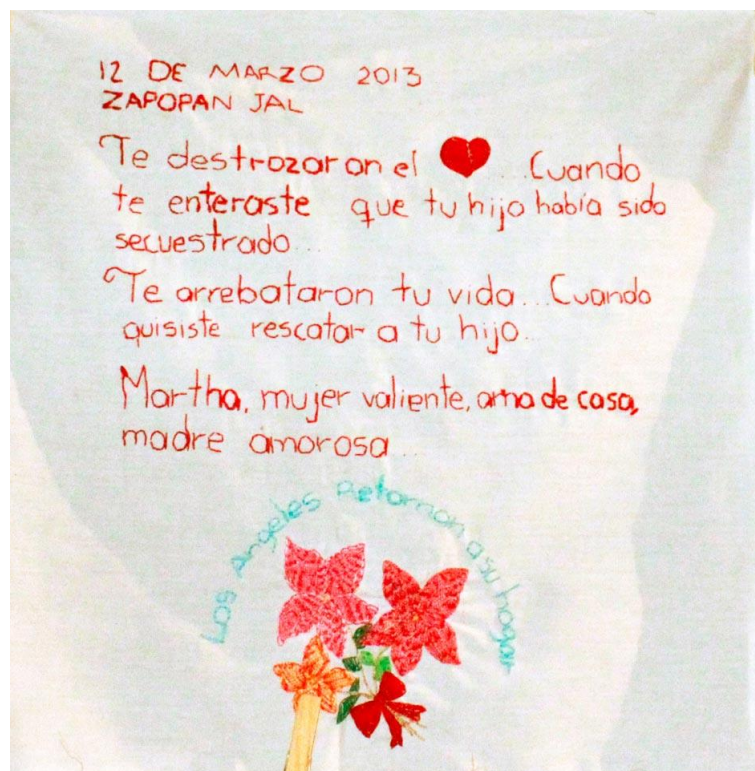 12 DE MARZO 2013
ZAPOPAN JAL
Te destrozaron el ♥...Cuando
te enteraste que tu hijo había sido
secuestrado...
Te arrebataron tu vida...Cuando
quisiste rescatar a tu hijo...
Martha, mujer valiente, ama de casa,
madre amorosa...
Los Angeles Retornan a su hogar